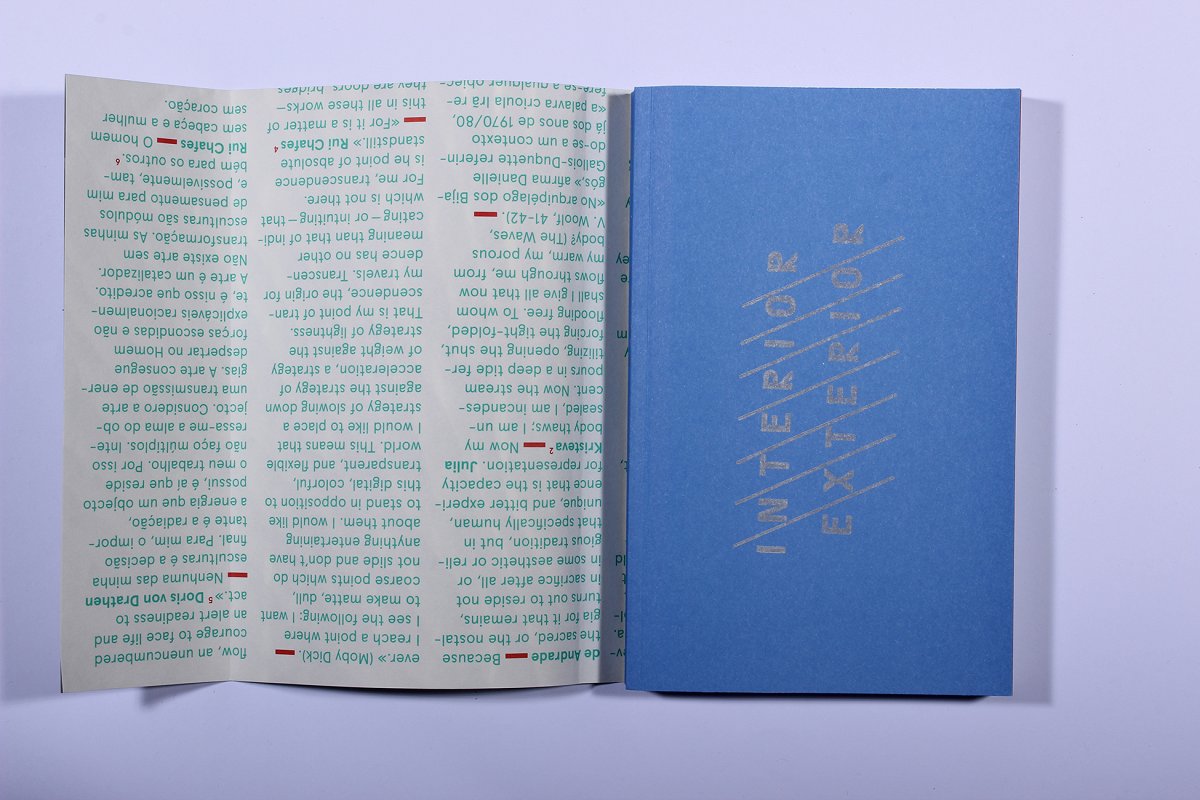 de Andrade — Because
the sacred, or the nostal-
gia for it that remains,
turns out to reside not
in sacrifice after all, or
in some aesthetic or reli-
gious tradition, but in
that specifically human,
unique, and bitter experi-
ence that is the capacity
for representation. Julia
Kristeva ² — Now my
body thaws; I am un-
sealed, I am incandes-
cent. Now the stream
pours in a deep tide fer-
tilizing, opening the shut,
forcing the tight-folded,
flooding free. To whom
shall I give all that now
flows through me, from
my warm, my porous
body? (The Waves,
V. Woolf, 41-42). —
«No arquipélago dos Bija-
gós,» afirma Danielle
Gallois-Duquette referin-
do-se a um contexto
já dos anos de 1970/80,
«a palavra crioula Irã re-
fere-se a qualquer objec-
ever.» (Moby Dick). —
I reach a point where
I see the following: I want
to make matte, dull,
coarse points which do
not slide and don't have
anything entertaining
about them. I would like
to stand in opposition to
this digital, colorful,
transparent, and flexible
world. This means that
I would like to place a
strategy of slowing down
against the strategy of
acceleration, a strategy
of weight against the
strategy of lightness.
That is my point of tran-
scendence, the origin for
my travels. Transcen-
dence has no other
meaning than that of indi-
cating – or intuiting – that
which is not there.
For me, transcendence
is he point of absolute
standstill.» Rui Chafes ⁴
— «For it is a matter of
this in all these works–
they are doors, bridges,
flow, an unencumbered
courage to face life and
an alert readiness to
act.» ⁵ Doris von Drathen
— Nenhuma das minha
esculturas é a decisão
final. Para mim, o impor-
tante é a radiação,
a energia que um objecto
possui, é aí que reside
o meu trabalho. Por isso
não faço múltiplos. Inte-
ressa-me a alma do ob-
jecto. Considero a arte
uma transmissão de ener-
gias. A arte consegue
despertar no Homem
forças escondidas e não
explicáveis racionalmen-
te, é nisso que acredito.
A arte é um catalizador.
Não existe arte sem
transformação. As minhas
esculturas são módulos
de pensamento para mim
e, possivelmente, tam-
bém para os outros. ⁶
Rui Chafes — O homem
sem cabeça e a mulher
sem coração.
INTERIOR
EXTERIOR